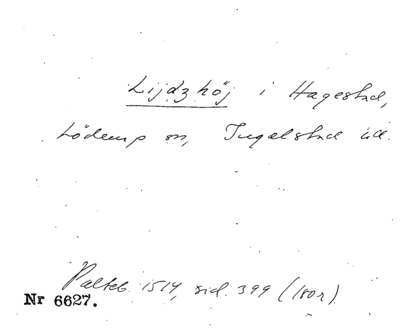 Lijdz höj i Hagestad,
Löderup sn, Ingelstad hd.
Palteb. 1514, sid. 399 (180r)
Nr 6627.